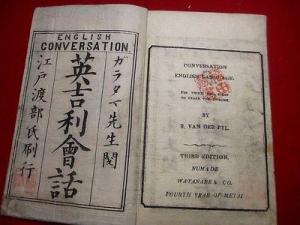 ENGLISH
CONVERSATION
ガラタマ先生閲
英吉利會話
江戸渡部氏刷行
CONVERSATION
ENGLISH LANGUAGE.
FOR THOSE WHO
BY
R. VAN DER PYL.
THIRD EDITION.
NUMADE
WATANABE & CO.
FOURTH YEAR OF METJI